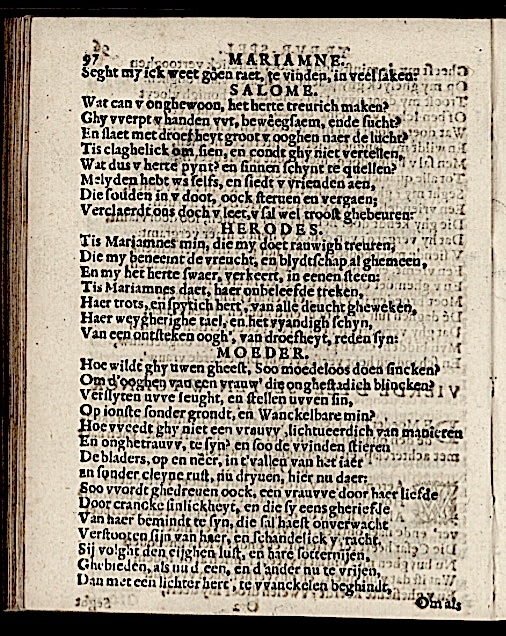 97 MARIAMNE.
Seght my ick weet goen raet, te vinden, in veel saken?
SALOME.
Wat can v onghewoon, het herte treurich maken?
Ghy vverpt v handen vvt, beweegsaem, ende sucht?
En slaet met droefheyt groot v ooghen naer de lucht?
Tis claghelick om sien, en condt ghy niet vertellen,
Wat dus v herte pynt? en sinnen schynt te quellen?
Melyden hebt ws selfs, en siedt v vrienden aen,
Die souden in v doot, oock sterven en vergaen;
Verclaerdt ons doch v leet, v sal wel troost ghebeuren:
HERODES.
Tis Mariamnes min, die my doet rauwigh treuren,
Die my beneemt de vreucht, en blydtschap al ghemeen,
En my het herte swaer, verkeert, in eenen steen:
Tis Mariamnes daet, haer onbeleefde treken,
Haer trots, en spytich hert, van alle deucht gheweken,
Haer weygherighe tael, en het vyandigh schyn,
Van een ontsteken oogh, van droefheyt, reden syn:
MOEDER.
Hoe wildt ghy uwen gheest, Soo moedeloos doen sincken?
Om d'ooghen van een vrauw' die onghestadich blincken?
Verslyten uvve jeught, en stellen uvven sin,
Op jonste sonder grondt, en Wanckelbare min?
Hoe vveedt ghy niet een vrauvv', lichtueerdich van manieren
En onghetrauvv, te syn? en soo de vvinden stieren
De bladers, op en neer, in t'vallen van het jaer
En sonder cleyne rust, nu dryuen, hier nu daer:
Soo vvordt ghedreuen oock, een vrauvve door haer liefde
Door crancke sinlickheyt, en die sy eens gheriefde
Van haer bemindt te syn, die sal haest onverwacht
Verstooten sijn van haer, en schandelick veracht,
Sij volght den eijghen lust, en hare sotternijen,
Ghebieden, als nu d'een, en d'ander nu te vrijen,
Dan met een lichter hert, te vvanckelen beghindt,
Om als